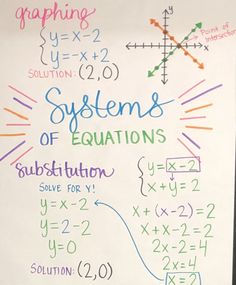 graphing
y = x - 2
y = -x + 2
SOLUTION: (2,0)
y
x
Point of
intersection
Systems
OF EQUATIONS
substitution
SOLVE FOR Y!
y = x - 2
y = 2 - 2
y = 0
SOLUTION: (2,0)
y = x - 2
x + y = 2
x + (x - 2) = 2
x + x - 2 = 2
2x - 2 = 4
2x = 4
x = 2